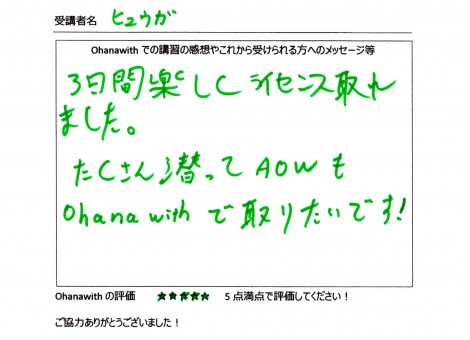 受講者名 ヒュウガ
Ohanawith での講習の感想やこれから受けられる方へのメッセージ等
3日間楽しくライセンス取れ
ました。
たくさん潜ってAOWも
Ohanawithで取りたいです!
Ohanawith の評価 ★★★★★ 5点満点で評価してください!
ご協力ありがとうございました!